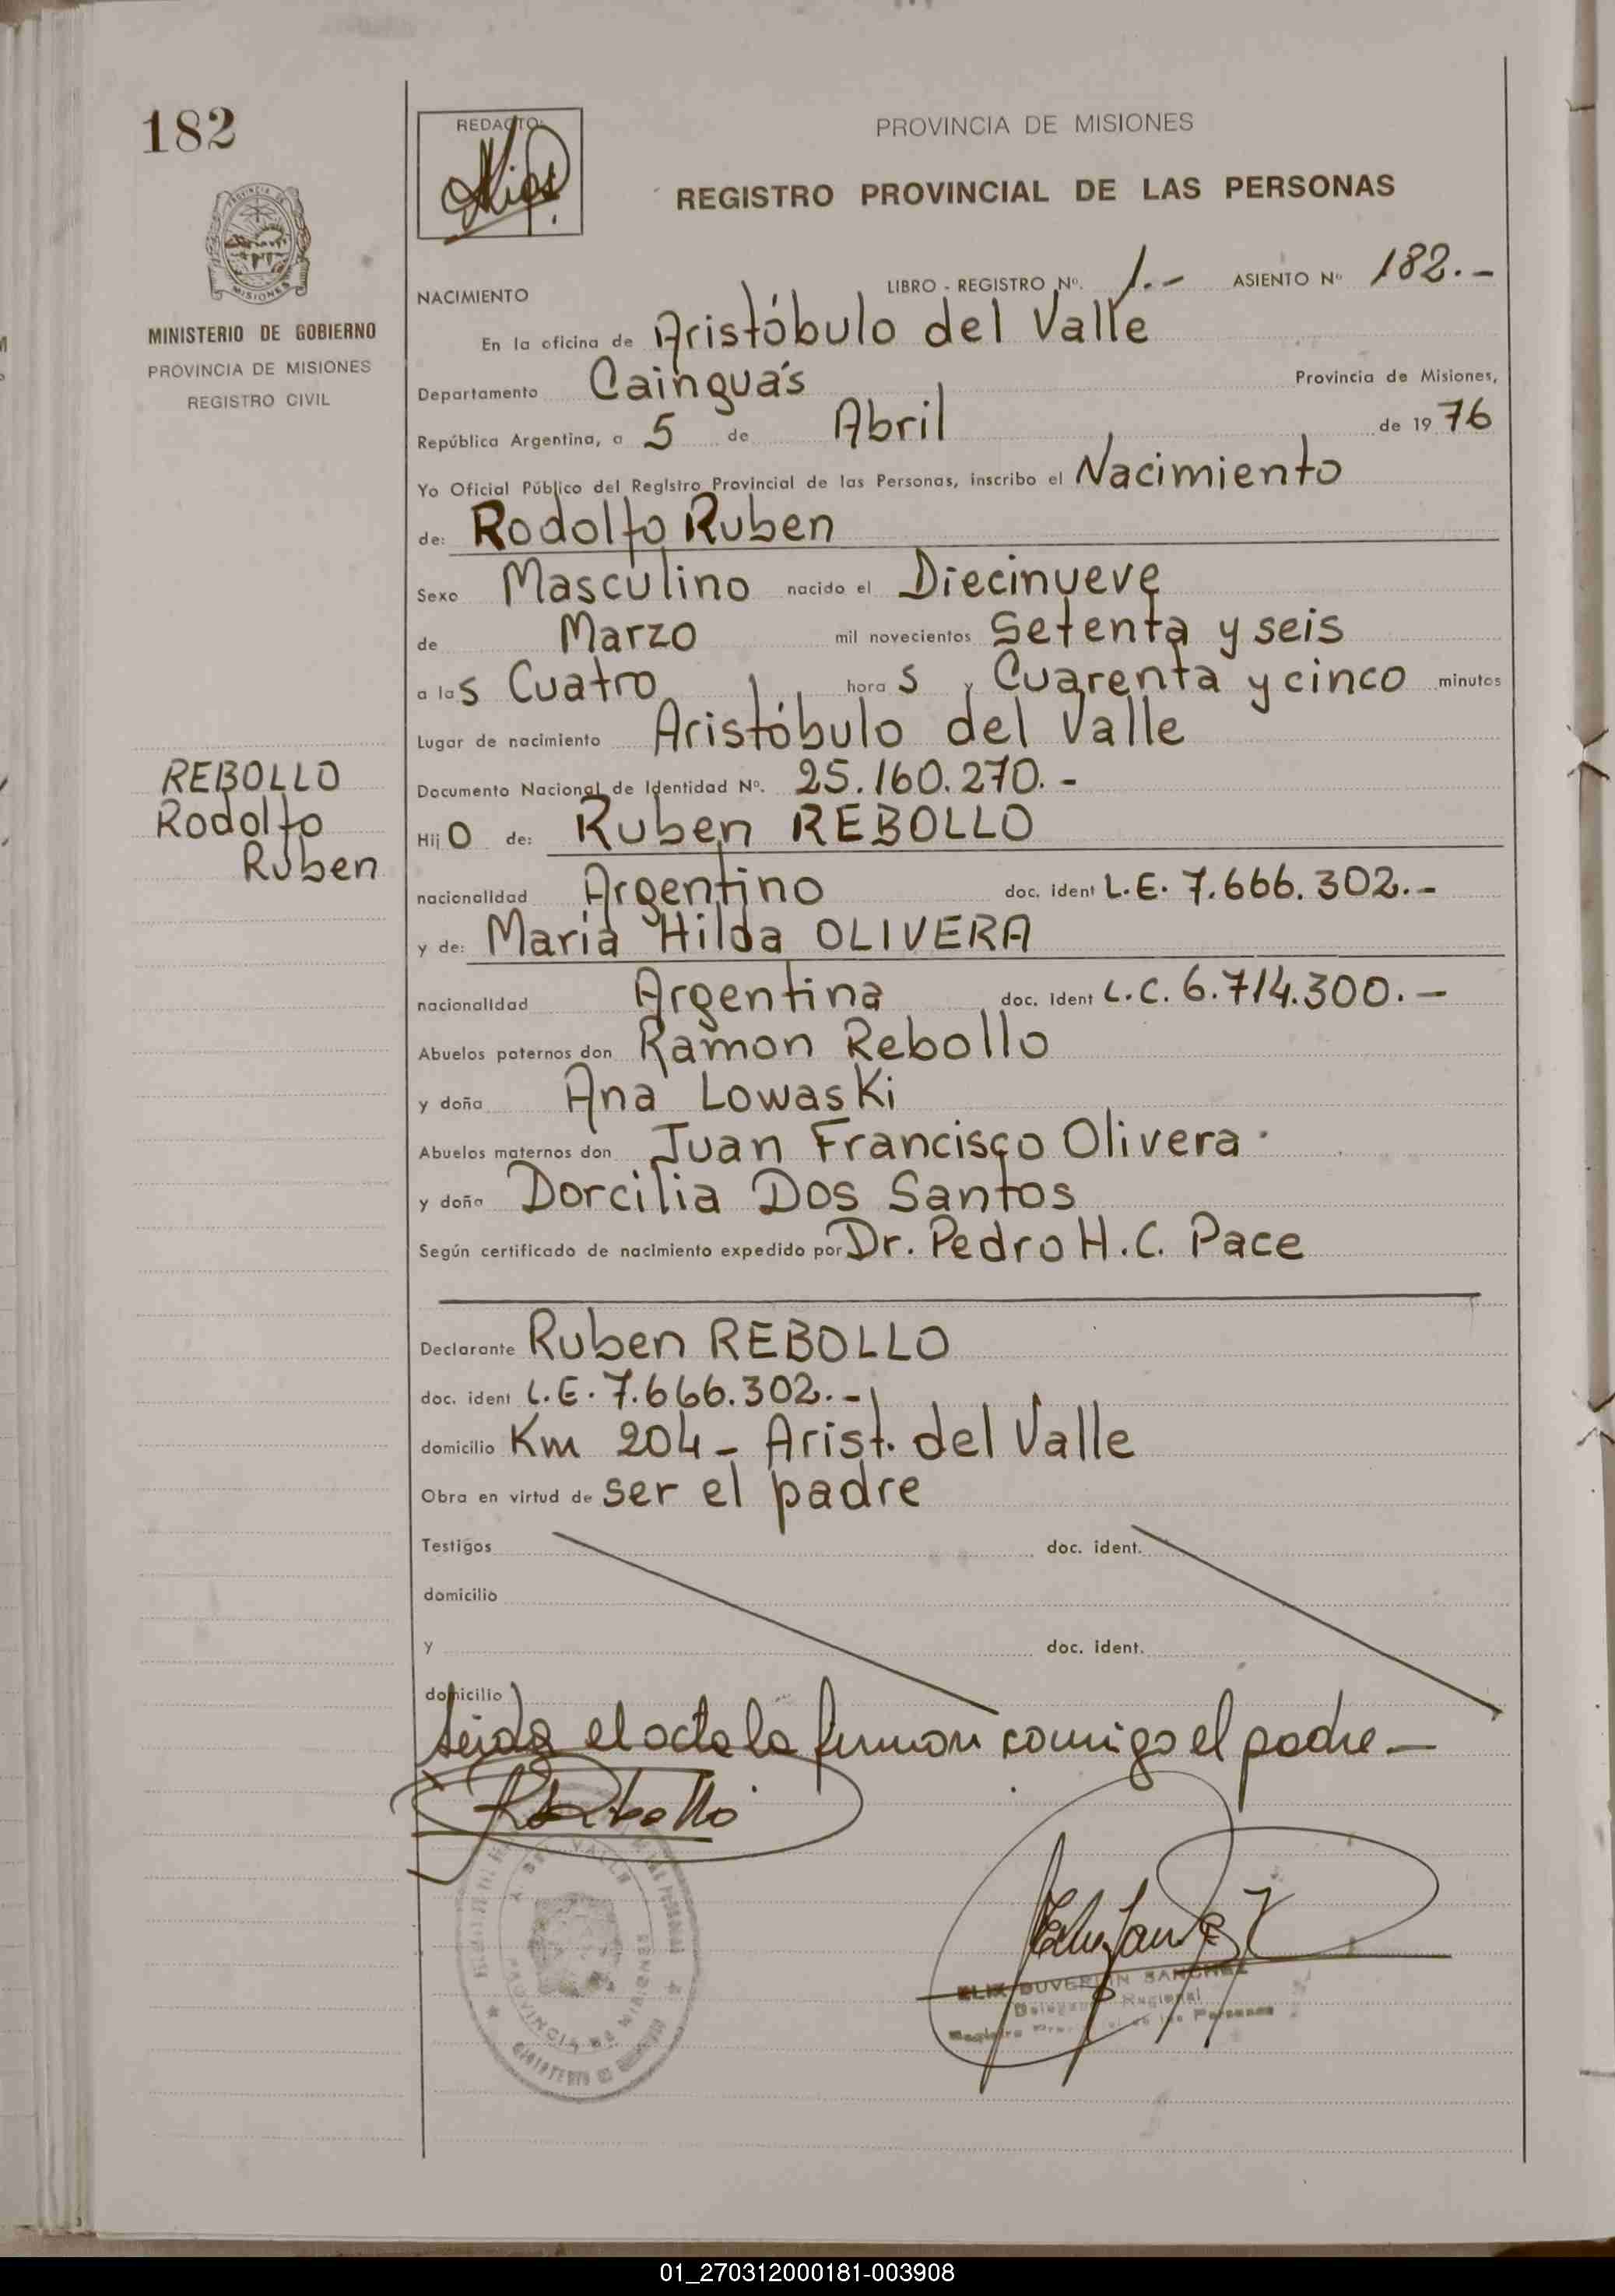 182
REDACTO:
PROVINCIA DE MISIONES
REGISTRO PROVINCIAL DE LAS PERSONAS
PROVINCIA
MISIONES
MINISTERIO DE GOBIERNO
PROVINCIA DE MISIONES
REGISTRO CIVIL
NACIMIENTO LIBRO - REGISTRO Nº. 1.- ASIENTO Nº 182.-
En la oficina de Aristóbulo del Valle
Departamento Cainguás Provincia de Misiones,
República Argentina, a 5 de Abril de 1976
Yo Oficial Público del Registro Provincial de las Personas, inscribo el Nacimiento
de: Rodolfo Ruben
Sexo Masculino nacido el Diecinueve
de Marzo mil novecientos Setenta y seis
a las Cuatro horas y Cuarenta y cinco minutos
Lugar de nacimiento Aristóbulo del Valle
Documento Nacional de Identidad Nº. 25.160.270.-
REBOLLO
Rodolfo
Ruben
Hijo de: Ruben REBOLLO
nacionalidad Argentino doc. ident L.E. 7.666.302.-
y de: Maria Hilda OLIVERA
nacionalidad Argentina doc. ident L.C. 6.714.300.-
Abuelos paternos don Ramon Rebollo
y doña Ana Lowaski
Abuelos maternos don Juan Francisco Olivera
y doña Dorcilia Dos Santos
Según certificado de nacimiento expedido por Dr. Pedro H.C. Pace
Declarante Ruben REBOLLO
doc. ident L.E. 7.666.302.-
domicilio Km 204- Arist. del Valle
Obra en virtud de ser el padre
Testigos doc. ident.
domicilio
y doc. ident.
domicilio
Leida el acta la firman comigo el padre.-
Rebollo
A. DEL VALLE
PROVINCIA DE MISIONES
MINISTERIO DE GOBIERNO
SANCHEZ
Regional
Personas
01_270312000181-003908